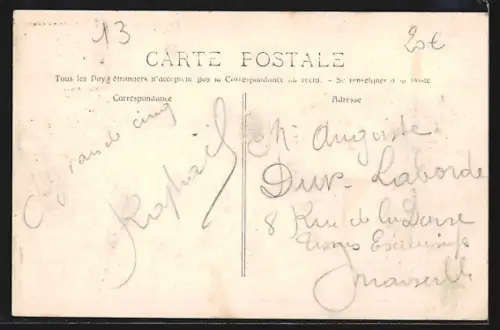 13
20€
CARTE POSTALE
Tous les Pays étrangers n'acceptent pas la Correspondance au recto. - Se renseigner à la Poste
Correspondance
Adresse
cinq
Raphaël
Mr Auguste
Laborde
8 Rue de la Darse
Marseille